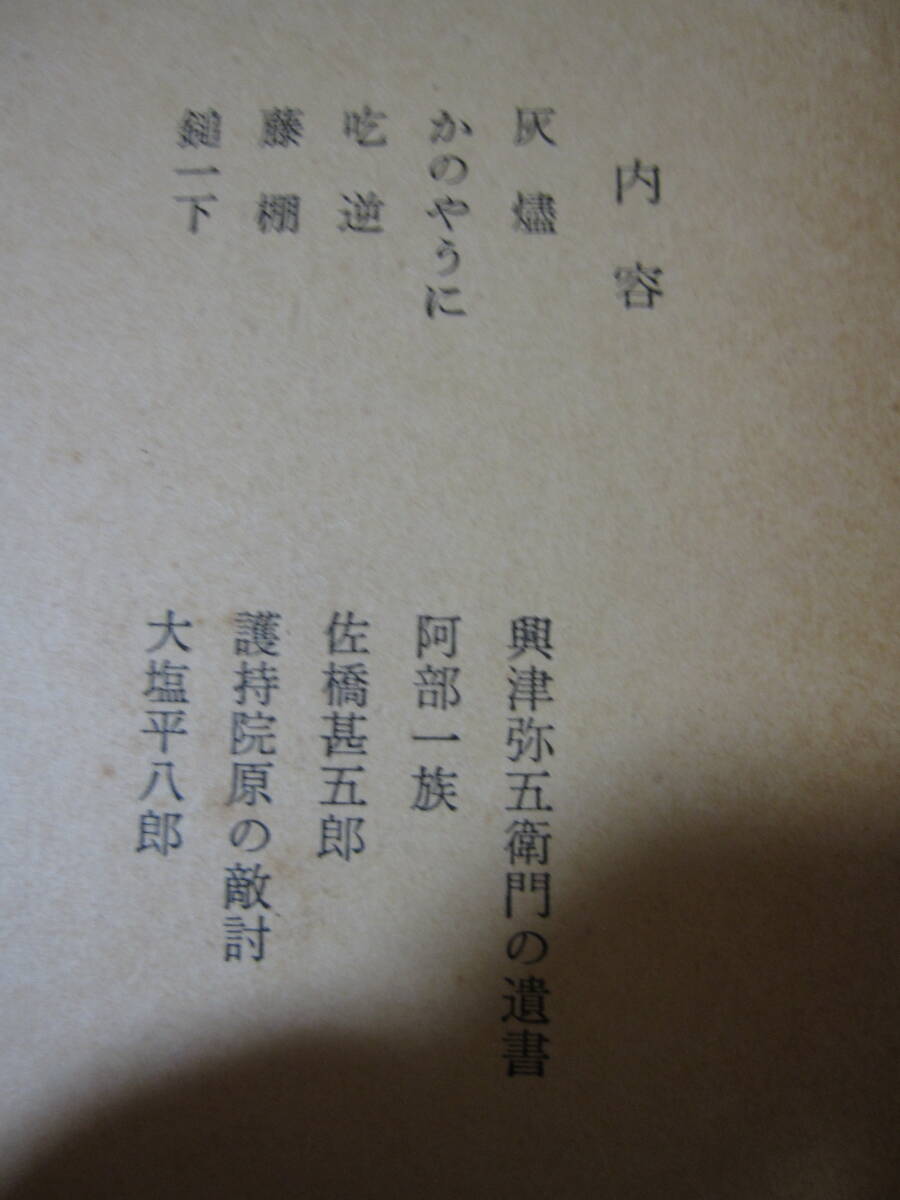 内容
灰燼
かのやうに
吃逆
藤棚
鎚一下
興津弥五衛門の遺書
阿部一族
佐橋甚五郎
護持院原の敵討
大塩平八郎